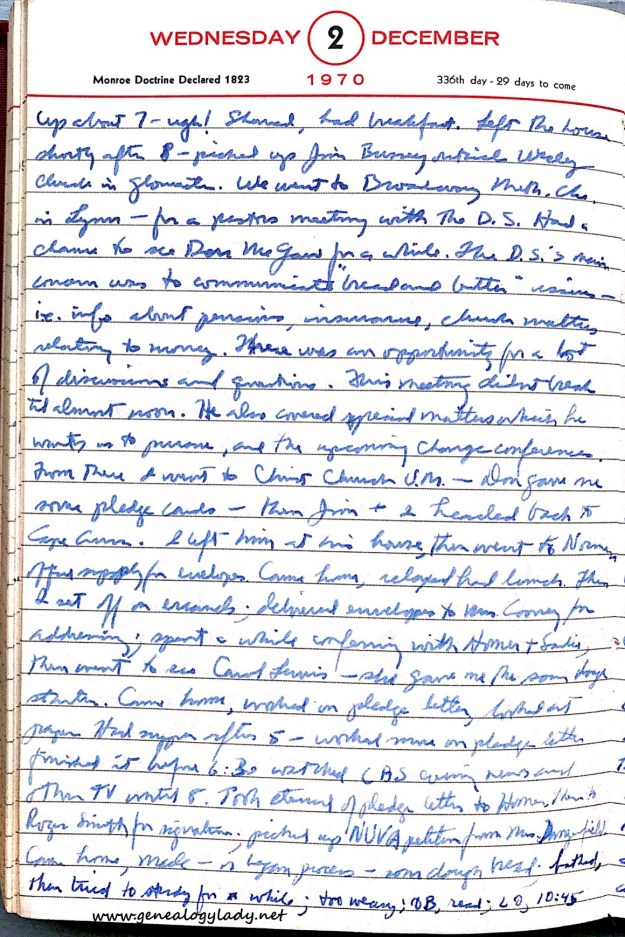 WEDNESDAY 2 DECEMBER
Monroe Doctrine Declared 1823 1970 336th day - 29 days to come
Up about 7 - ugh! Shaved, had breakfast. Left the house
shortly after 8 - picked up Jim Bussey outside Wesley
Church in Gloucester. We went to Broadway Meth. Ch.
in Lynn - for a pastors meeting with the D.S. Had a
chance to see Don McGaw for a while. The D.S.'s main
concern was to communicate "bread and butter" issues -
i.e. info about pensions, insurance, church matters
relating to money. There was an opportunity for a lot
of discussions and questions. This meeting didn't break
til almost noon. He also covered special matters which he
wants us to pursue, and the upcoming Charge conferences.
From there I went to Christ Church U.M. - Don gave me
some pledge cards - then Jim + I headed back to
Cape Ann. I left him at his house, then went to
office supply for envelopes. Came home, relaxed had lunch. Then
I set off on errands; delivered envelopes to Mrs. Cooney for
addressing; spent a while conferring with Homer + Sadie,
then went to see Carol Lewis - she gave me the sour dough
starter. Came home, worked on pledge letter, looked at
paper. Had supper after 5 - worked more on pledge letter
finished it before 6:30 watched CBS evening news and
other TV until 8. Took stencil of pledge letter to Homer, then to
Roger Smith for signature; picked up NUVA petition from Mrs.
Came home, made - or began process - sour dough bread. bathed,
then tried to study for a while; too weary; OB, read; LO, 10:45
www.genealogylady.net